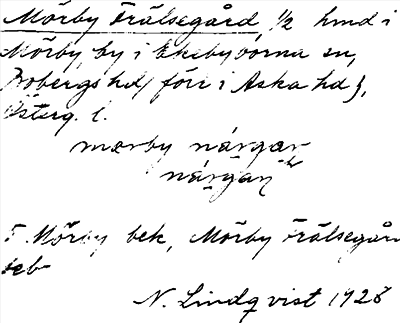 Mörby Frälsegård, 1/2 hmd i
Mörby by i Ekebyborna sn,
Bobergs hd (förr i Aska hd),
Österg. l.
mœrby nárgar
nárgan
F. Mörby bek, Mörby Frälsegård
beb
N. Lindqvist 1928